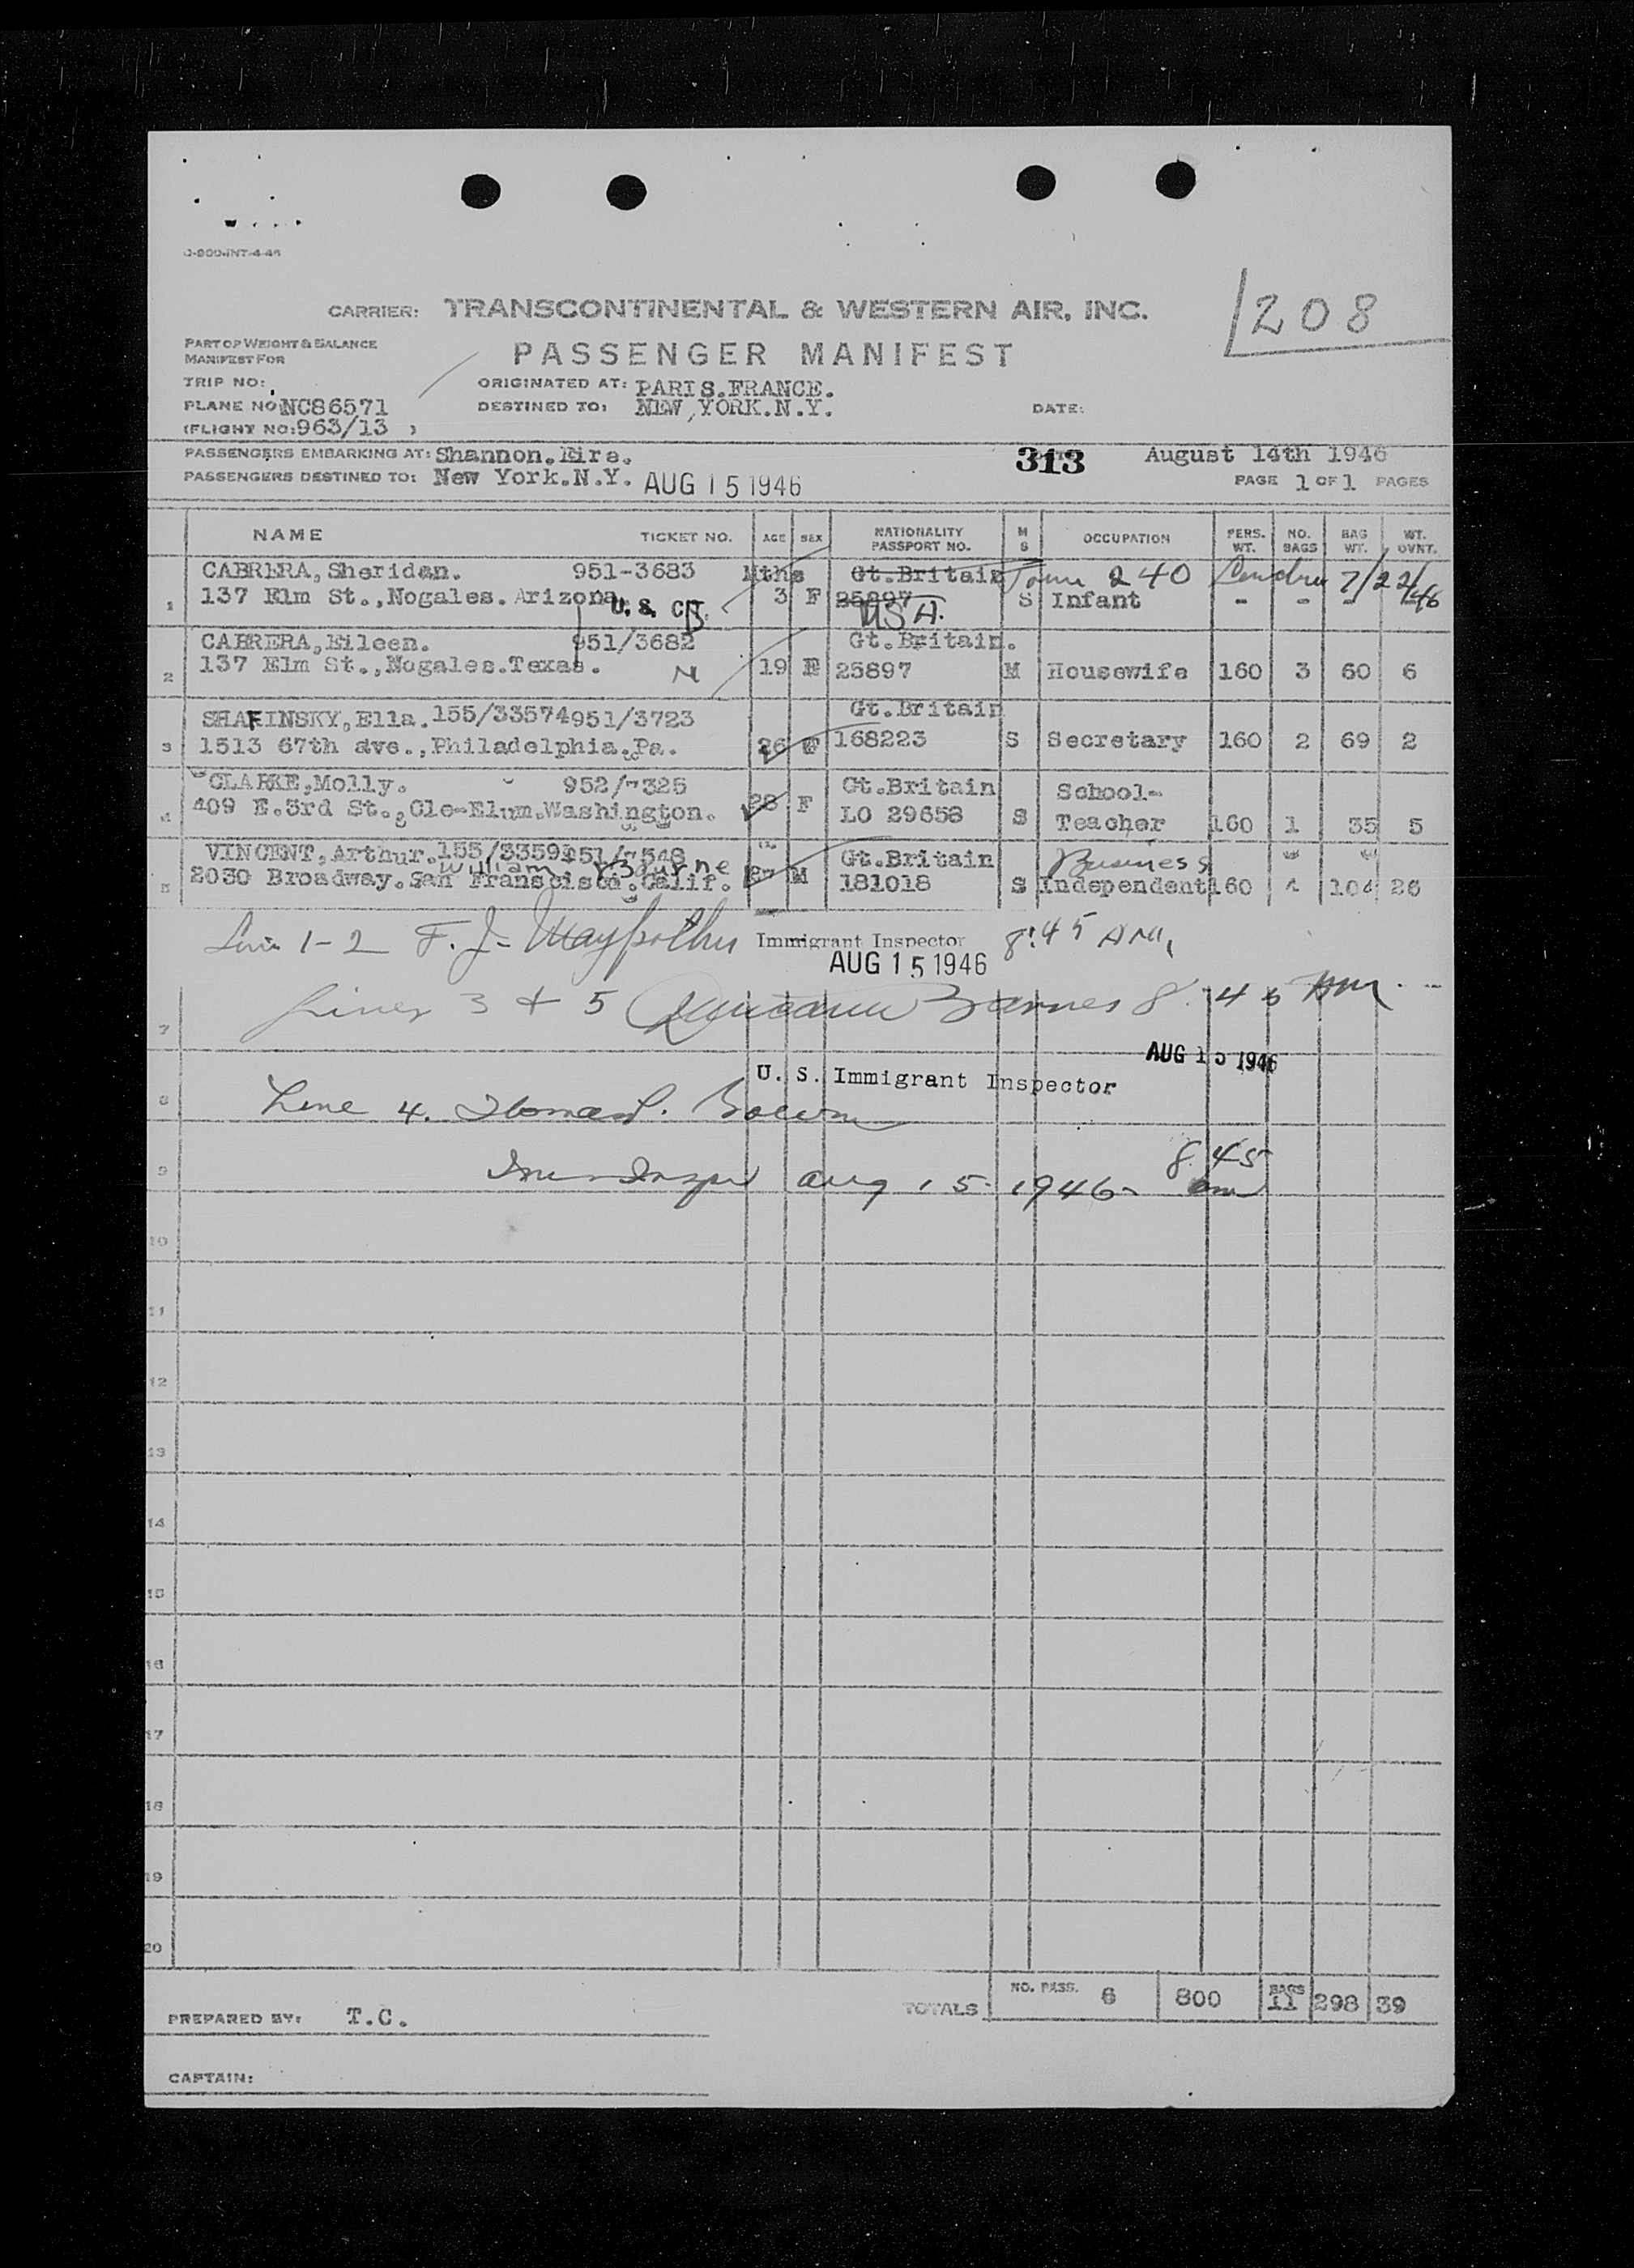 O-900-INT-4-46
1208
CARRIER: TRANSCONTINENTAL & WESTERN AIR, INC.
PART OF WEIGHT & BALANCE
MANIFEST FOR
PASSENGER MANIFEST
TRIP NO:
ORIGINATED AT: PARIS.FRANCE.
PLANE NO: NC86571
DESTINED TO: NEW YORK.N.Y.
DATE:
(FLIGHT NO: 963/13 )
PASSENGERS EMBARKING AT: Shannon.Eire.
313
August 14th 1946
PASSENGERS DESTINED TO: New York.N.Y. AUG 15 1946
PAGE 1 OF 1 PAGES
NAME TICKET NO. AGE SEX NATIONALITY PASSPORT NO. M S OCCUPATION PERS. WT. NO. BAGS BAG WT. WT. OVNT.
CABRERA, Sheridan. 951-3683 Mths Gt.Britain Form 240 London 7/22/46
1 137 Elm St.,Nogales. Arizona U. S. CIT. 3 F 25897 S Infant - - - -
USA.
CABRERA, Eileen. 951/3682 Gt.Britain.
2 137 Elm St.,Nogales.Texas. N 19 F 25897 M Housewife 160 3 60 6
SHAFINSKY, Ella. 155/33574 951/3723 Gt.Britain
3 1513 67th ave.,Philadelphia.Pa. 26 F 168223 S Secretary 160 2 69 2
CLARKE,Molly. 952/7325 Gt.Britain School-
4 409 E.3rd St., Cle-Elum.Washington. 28 F LO 29658 S Teacher 160 1 35 5
VINCENT, Arthur. 155/3359 951/7548 Gt.Britain Business
William
5 2030 Broadway.San Franscisco.Calif. M 181018 S Independent 160 104 26
Line 1-2 F. J. Immigrant Inspector 8:45 AM,
AUG 15 1946
Lines 3 + 5 Barnes 8:45 AM.
7
AUG 15 1946
U. S. Immigrant Inspector
8 Line 4. Thomas
9 Aug 15 1946 8 45 am
10
11
12
13
14
15
16
17
18
19
20
TOTALS NO. PASS. 6 800 BAGS 11 298 39
PREPARED BY: T.C.
CAPTAIN: